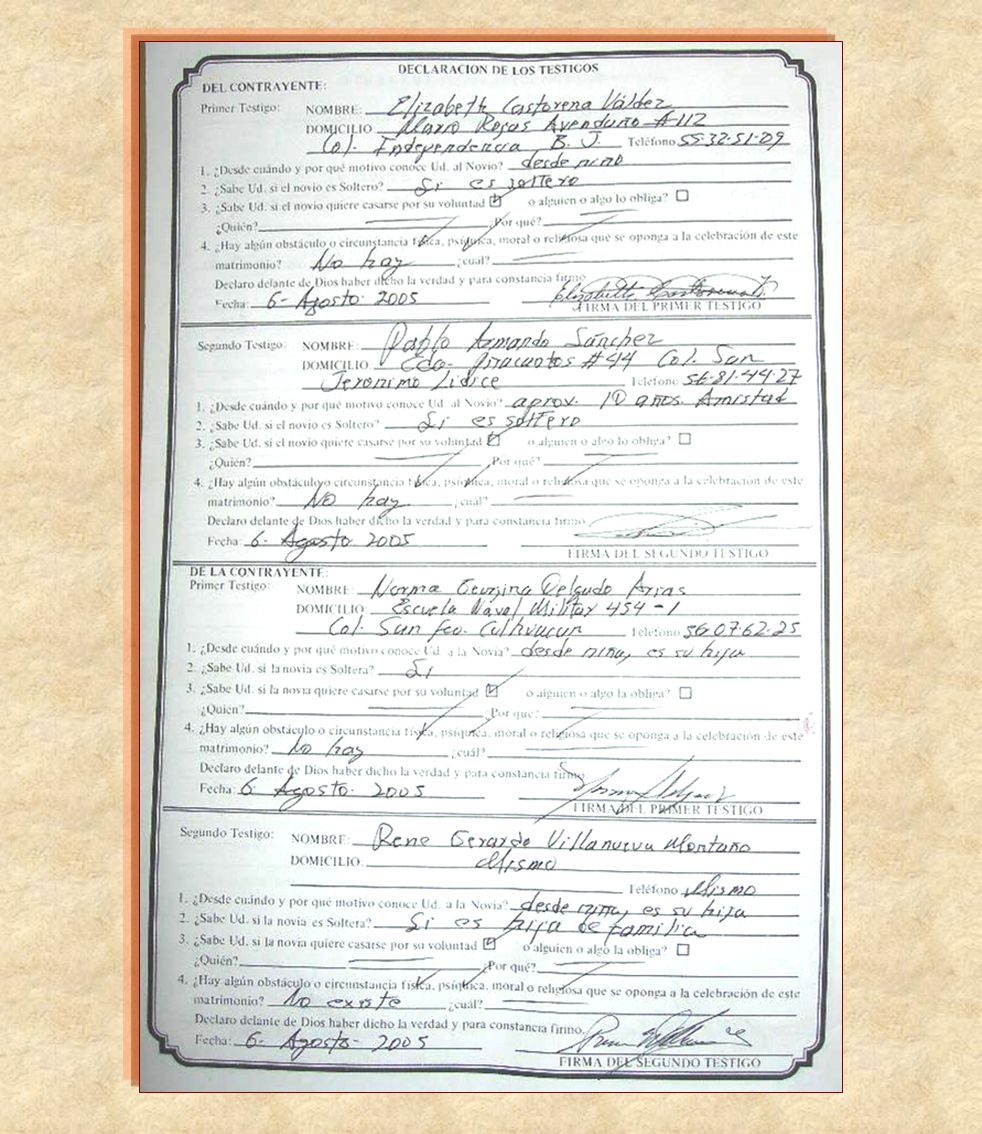 DECLARACION DE LOS TESTIGOS
DEL CONTRAYENTE:
Primer Testigo: NOMBRE: Elizabeth Castorena Váldez
DOMICILIO Mario Rojas Avendaño #112
Col. Independencia, B. J. Teléfono 55-32-51-09
1. ¿Desde cuándo y por qué motivo conoce Ud. al Novio? desde niño
2. ¿Sabe Ud. si el novio es Soltero? Si es soltero
3. ¿Sabe Ud. si el novio quiere casarse por su voluntad o alguien o algo lo obliga?
¿Quién? ¿Por qué?
4. ¿Hay algún obstáculo o circunstancia física, psíquica, moral o religiosa que se oponga a la celebración de este
matrimonio? No hay ¿cuál?
Declaro delante de Dios haber dicho la verdad y para constancia firmo
Fecha: 6- Agosto 2005
FIRMA DEL PRIMER TESTIGO
Segundo Testigo: NOMBRE: Pablo Armando Sánchez
DOMICILIO Cda- #44 Col. San
Jeronimo Lidice Teléfono 56-81-44-27
1. ¿Desde cuándo y por qué motivo conoce Ud. al Novio? aprox. 10 años. Amistad
2. ¿Sabe Ud. si el novio es Soltero? Si es soltero
3. ¿Sabe Ud. si el novio quiere casarse por su voluntad o alguien o algo lo obliga?
¿Quién? ¿Por qué?
4. ¿Hay algún obstáculo o circunstancia física, psíquica, moral o religiosa que se oponga a la celebración de este
matrimonio? No hay ¿cuál?
Declaro delante de Dios haber dicho la verdad y para constancia firmo
Fecha: 6- Agosto 2005
FIRMA DEL SEGUNDO TESTIGO
DE LA CONTRAYENTE:
Primer Testigo: NOMBRE: Norma Georgina Delgado Arias
DOMICILIO: Escuela Naval Militar 454-1
Col. San Fco. Culhuacan Teléfono 56-07-62-25
1. ¿Desde cuándo y por qué motivo conoce Ud. a la Novia? desde niña, es su hija
2. ¿Sabe Ud. si la novia es Soltera? Si
3. ¿Sabe Ud. si la novia quiere casarse por su voluntad o alguien o algo la obliga?
¿Quién? ¿Por qué?
4. ¿Hay algún obstáculo o circunstancia física, psíquica, moral o religiosa que se oponga a la celebración de este
matrimonio? No hay ¿cuál?
Declaro delante de Dios haber dicho la verdad y para constancia firmo
Fecha: 6- Agosto- 2005
FIRMA DEL PRIMER TESTIGO
Segundo Testigo: NOMBRE: Rene Gerardo Villanueva Montaño
DOMICILIO: Mismo
Teléfono Mismo
1. ¿Desde cuándo y por qué motivo conoce Ud. a la Novia? desde niña, es su hija
2. ¿Sabe Ud. si la novia es Soltera? Si es hija de familia
3. ¿Sabe Ud. si la novia quiere casarse por su voluntad o alguien o algo la obliga?
¿Quién? ¿Por qué?
4. ¿Hay algún obstáculo o circunstancia física, psíquica, moral o religiosa que se oponga a la celebración de este
matrimonio? No existe ¿cuál?
Declaro delante de Dios haber dicho la verdad y para constancia firmo.
Fecha: 6- Agosto- 2005
FIRMA DEL SEGUNDO TESTIGO